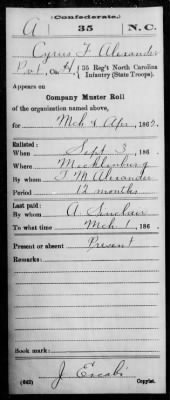 Confederate.
A 35 N.C.
Cyrus F Alexander
Pvt, Co. H, 35 Reg't North Carolina
Infantry (State Troops)
Appears on
Company Muster Roll
of the organization named above,
for Mch & Apr, 1863.
Enlisted:
When Sept 3, 186
Where Mecklenburg
By whom T M Alexander
Period 12 months
Last paid:
By whom A Sinclair
To what time Mch 1, 186 .
Present or absent Present
Remarks:
Book mark:
(642) Copyist.